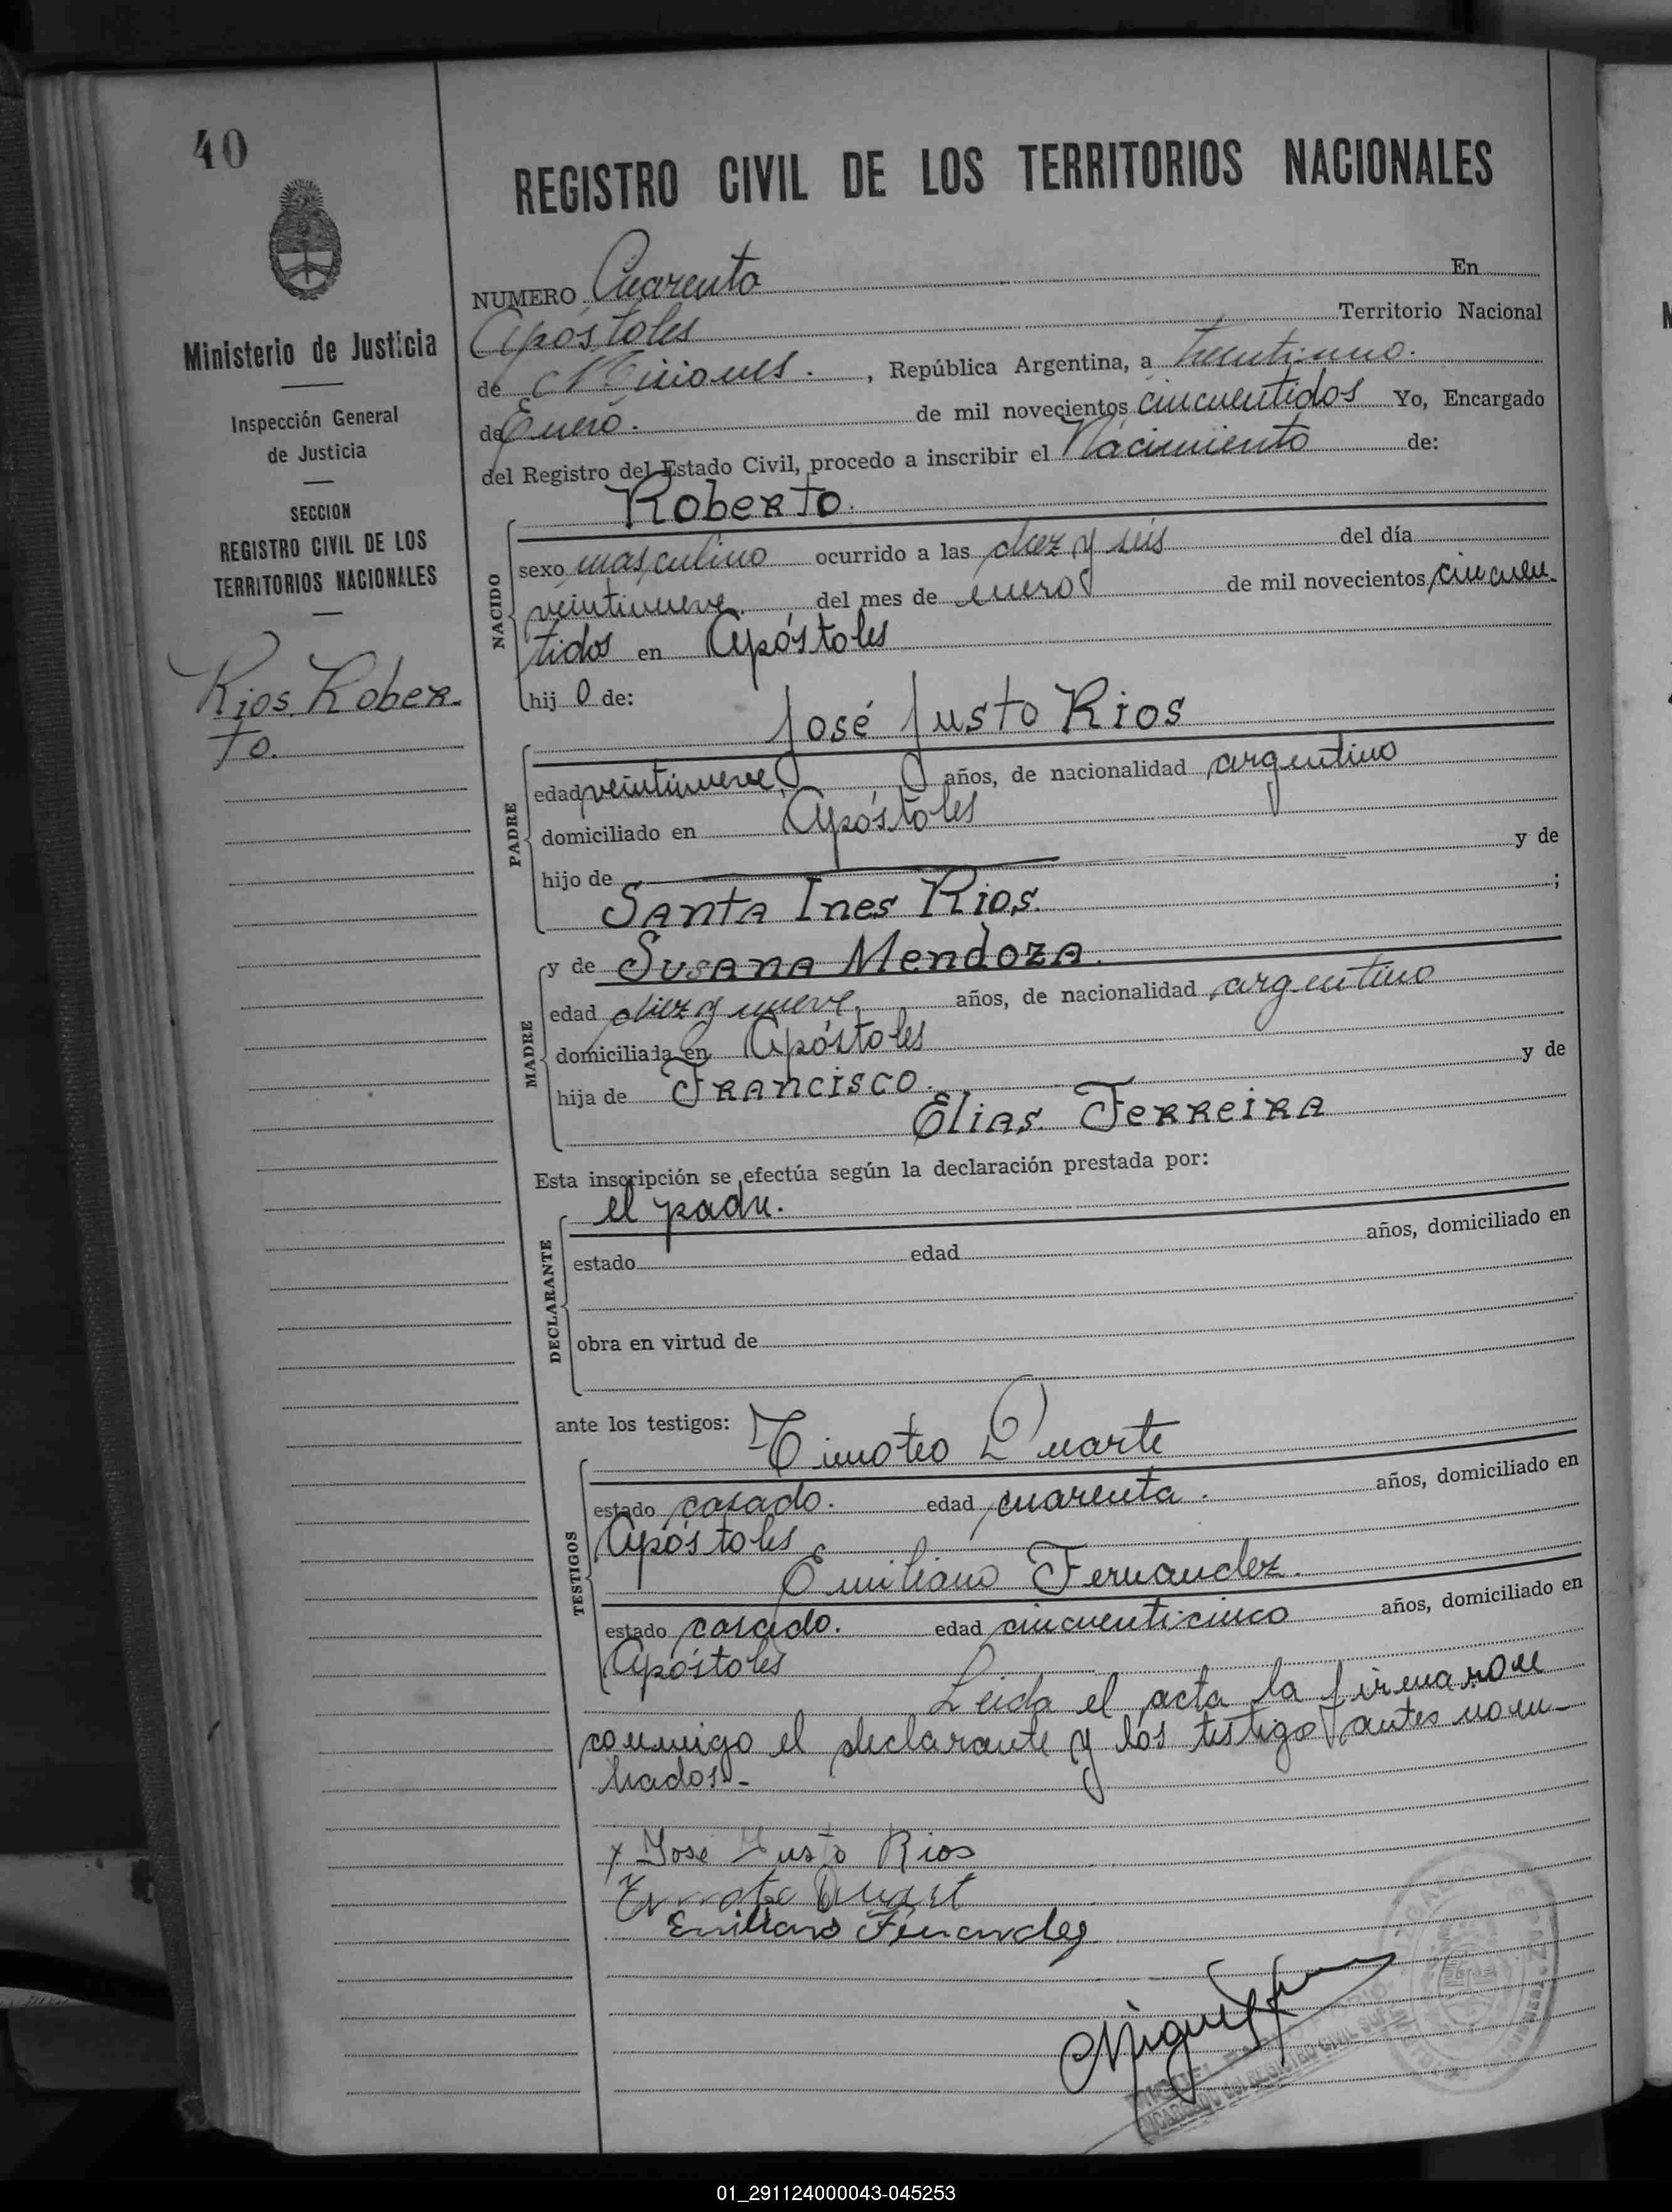 40
REGISTRO CIVIL DE LOS TERRITORIOS NACIONALES
Ministerio de Justicia
Inspección General
de Justicia
SECCION
REGISTRO CIVIL DE LOS
TERRITORIOS NACIONALES
Rios Rober-
to.
NUMERO Cuarenta En
Apóstoles Territorio Nacional
de Misiones. , República Argentina, a treintiuno.
de Enero. de mil novecientos cincuentidos Yo, Encargado
del Registro del Estado Civil, procedo a inscribir el Nacimiento de:
Roberto.
NACIDO
sexo masculino ocurrido a las diez y seis del día
veintinueve. del mes de enero de mil novecientos cincuen-
tidos en Apóstoles
hij o de:
José Justo Rios
PADRE
edad veintinueve años, de nacionalidad argentino
domiciliado en Apóstoles
hijo de y de
Santa Ines Rios. ;
MADRE
y de Susana Mendoza.
edad diez y nueve. años, de nacionalidad argentino
domiciliada en Apóstoles
hija de Francisco. y de
Elias Ferreira
Esta inscripción se efectúa según la declaración prestada por:
el padre.
DECLARANTE
estado edad años, domiciliado en
obra en virtud de
ante los testigos: Timoteo Duarte
TESTIGOS
estado casado. edad cuarenta. años, domiciliado en
Apóstoles
Emiliano Fernandez.
estado casado. edad cincuenticinco años, domiciliado en
Apóstoles
Leida el acta la firmaron
conmigo el declarante y los testigos antes nom-
brados.-
x José Justo Rios
Emiliano Fernandez
Miguel
ENCARGADO DEL REGISTRO CIVIL SUP.
01_291124000043-045253